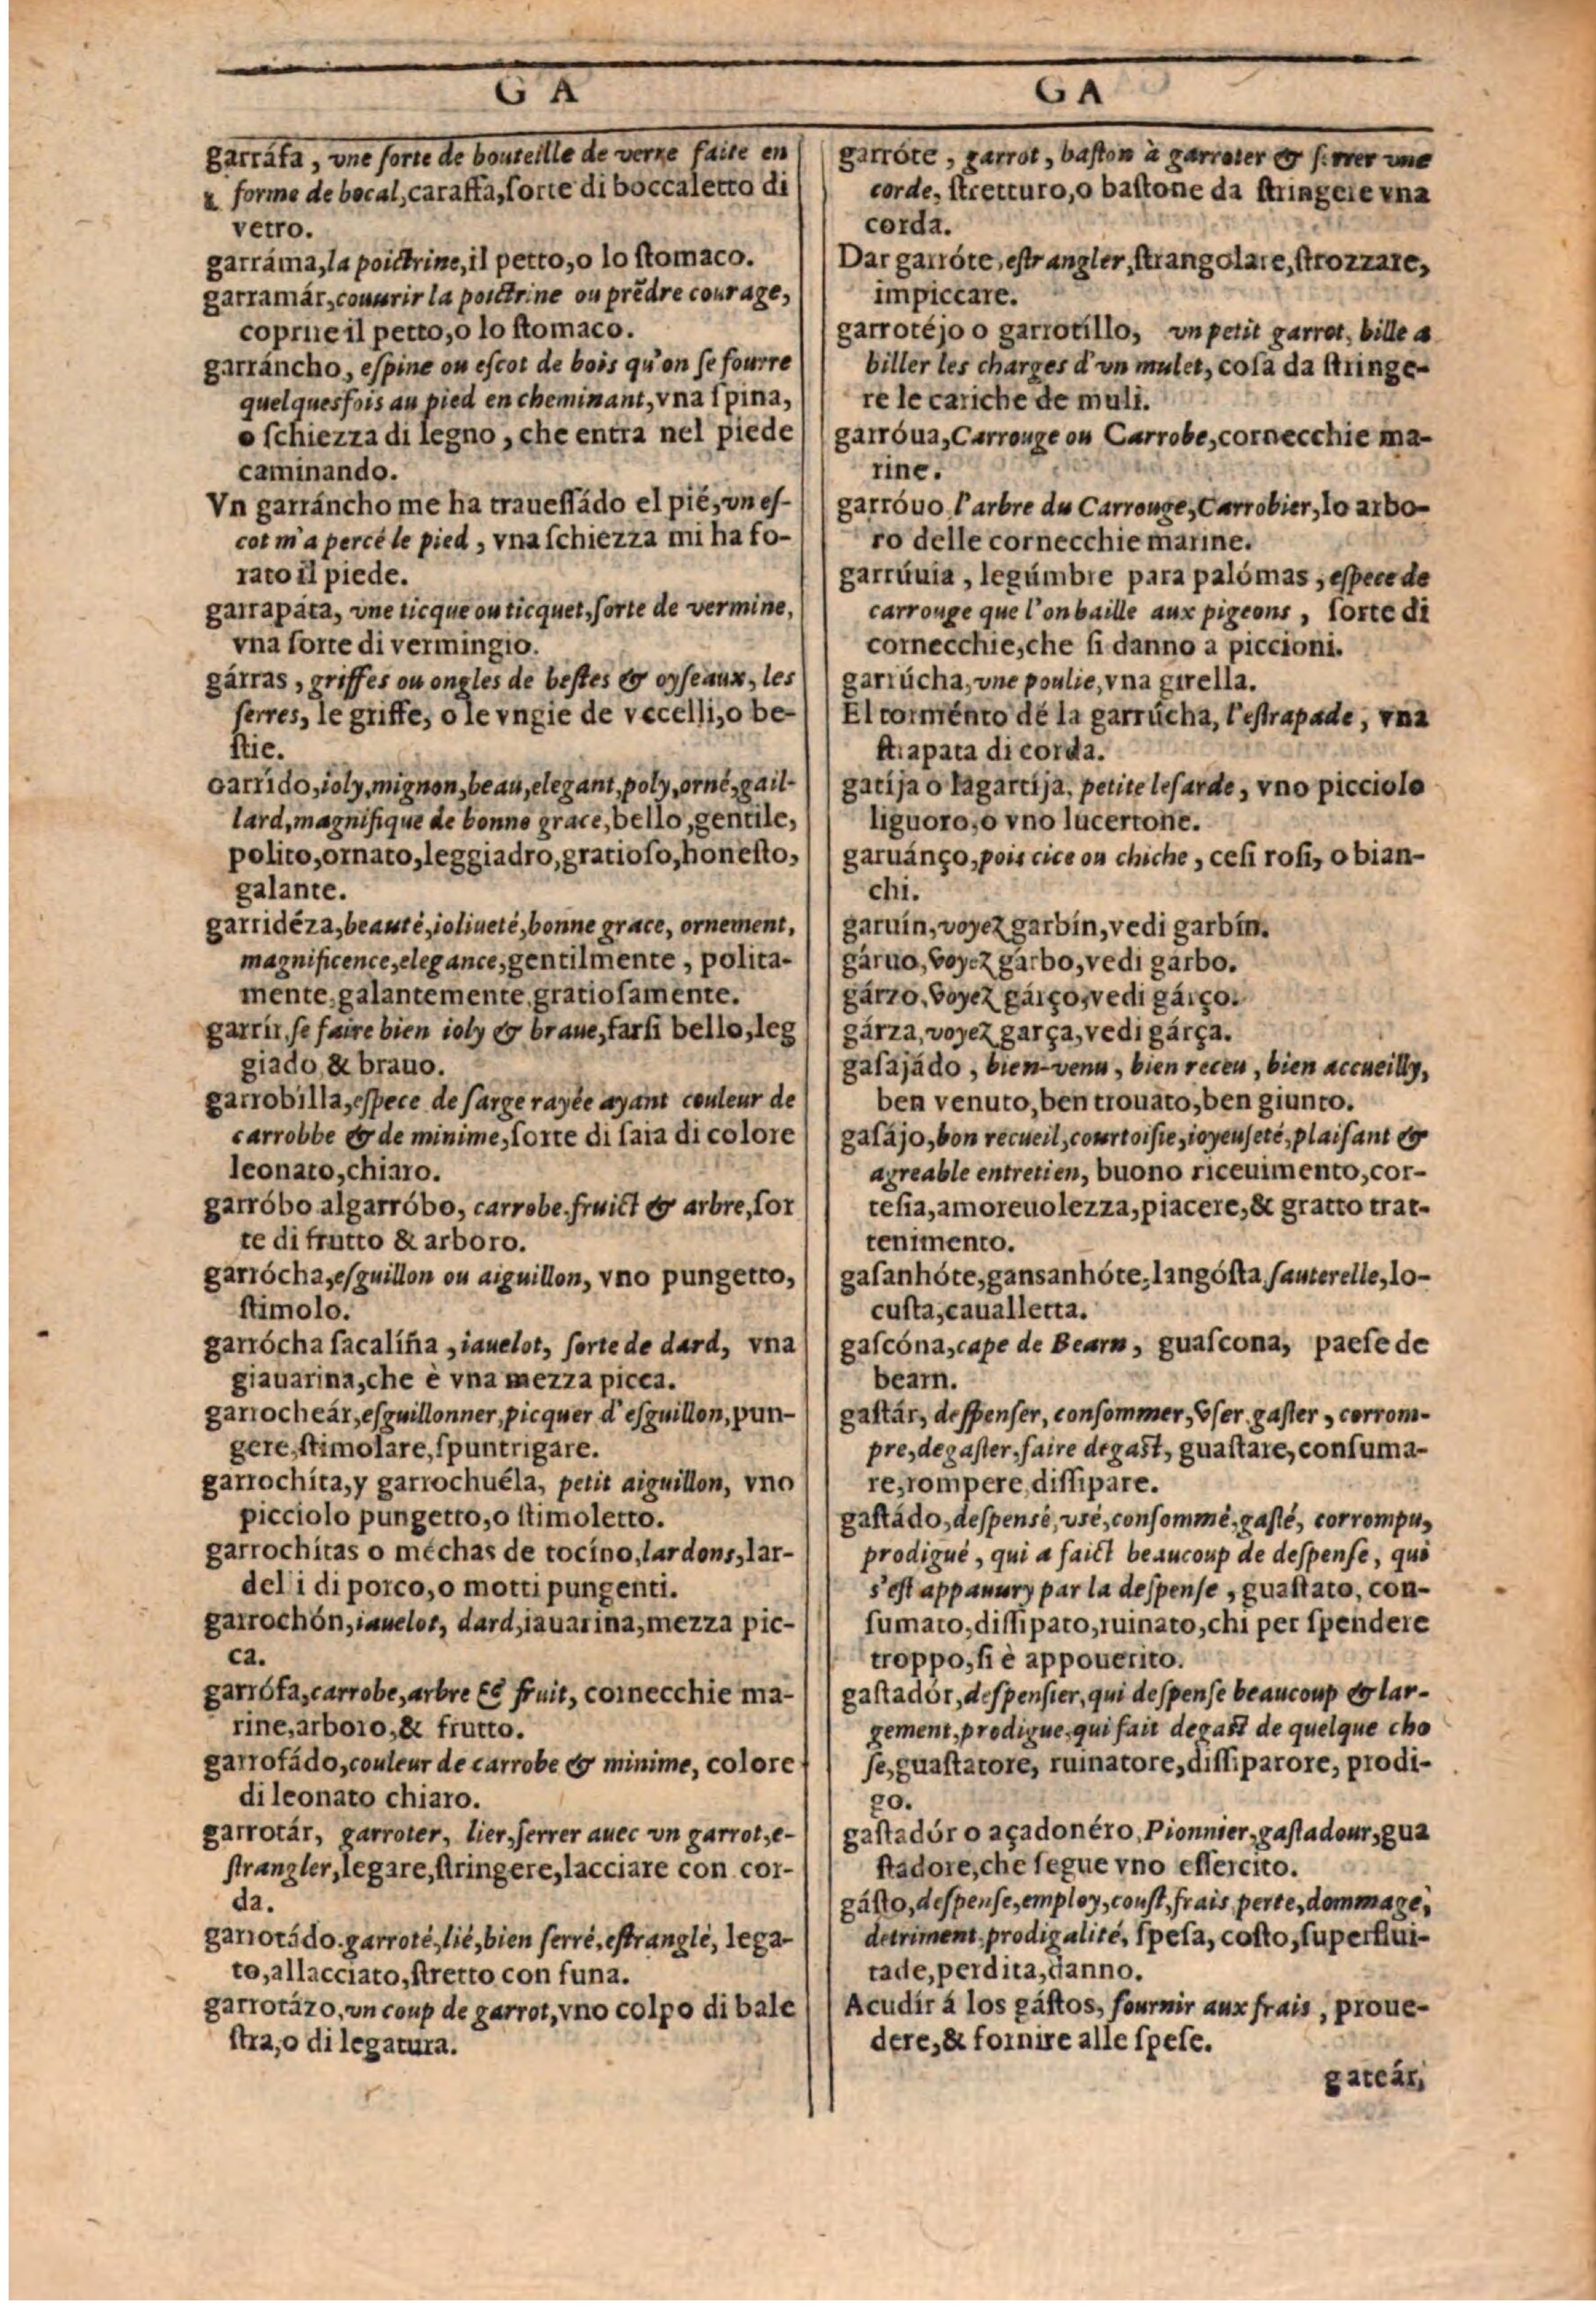 G A
garráfa, vne ſorte de bouteille de verre faite en
forme de bocal, caraffa, ſorte di boccaletto di
vetro.
garráma, la poictrine, il petto, o lo ſtomaco.
garramár, couurir la poictrine ou prẽdre courage,
coprire il petto, o lo ſtomaco.
garráncho, eſpine ou eſcot de bois qu'on ſe fourre
quelquesfois au pied en cheminant, vna ſpina,
o ſchiezza di legno, che entra nel piede
caminando.
Vn garráncho me ha traueſſádo el pié, vn eſ-
cot m'a percé le pied, vna ſchiezza mi ha fo-
rato il piede.
garrapáta, vne ticque ou ticquet, ſorte de vermine,
vna ſorte di vermingio.
gárras, griffes ou ongles de beſtes & oyſeaux, les
ſerres, le griffe, o le vngie de vccelli, o be-
ſtie.
Garrído, ioly, mignon, beau, elegant, poly, orné, gail-
lard, magnifique de bonne grace, bello, gentile,
polito, ornato, leggiadro, gratioſo, honeſto,
galante.
garridéza, beauté, ioliueté, bonne grace, ornement,
magnificence, elegance, gentilmente, polita-
mente, galantemente, gratioſamente.
garrír, ſe faire bien ioly & braue, farſi bello, leg
giado & brauo.
garrobílla, eſpece de ſarge rayée ayant couleur de
carrobbe & de minime, ſorte di ſaia di colore
leonato, chiaro.
garróbo algarróbo, carrobe. fruict & arbre, ſor
te di frutto & arboro.
garrócha, eſguillon ou aiguillon, vno pungetto,
ſtimolo.
garrócha ſacalíña, iauelot, ſorte de dard, vna
giauarina, che è vna mezza picca.
garrocheár, eſguillonner, picquer d'eſguillon, pun-
gere, ſtimolare, ſpuntrigare.
garrochíta, y garrochuéla, petit aiguillon, vno
picciolo pungetto, o ſtimoletto.
garrochítas o méchas de tocíno, lardons, lar-
delli di porco, o motti pungenti.
garrochón, iauelot, dard, iauarina, mezza pic-
ca.
garrófa, carrobe, arbre & fruit, cornecchie ma-
rine, arboro, & frutto.
garrofádo, couleur de carrobe & minime, colore
di leonato chiaro.
garrotár, garroter, lier, ſerrer auec vn garrot, e-
ſtrangler, legare, ſtringere, lacciare con cor-
da.
garrotádo. garroté, lié, bien ſerré, eſtranglé, lega-
to, allacciato, ſtretto con funa.
garrotázo, vn coup de garrot, vno colpo di bale
ſtra, o di legatura.
G A
garróte, garrot, baſton à garroter & ſerrer vne
corde, ſtretturo, o baſtone da ſtringere vna
corda.
Dar garróte, eſtrangler, ſtrangolare, ſtrozzare,
impiccare.
garrotéjo o garrotíllo, vn petit garrot, bille a
biller les charges d'vn mulet, coſa da ſtringe-
re le cariche de muli.
garróua, Carrouge ou Carrobe, cornecchie ma-
rine.
garróuo, l'arbre du Carrouge, Carrobier, lo arbo-
ro delle cornecchie marine.
garrúuia, legúmbre para palómas, eſpece de
carrouge que l'on baille aux pigeons, ſorte di
cornecchie, che ſi danno a piccioni.
garrúcha, vne poulie, vna girella.
El torménto dé la garrúcha, l'eſtrapade, vna
ſtrapata di corda.
gatíja o lagartíja, petite leſarde, vno picciolo
liguoro, o vno lucertone.
garuánço, pois cice ou chiche, ceſi roſi, o bian-
chi.
garuín, voyez garbín, vedi garbín.
gáruo, voyez gárbo, vedi gárbo.
gárzo, voyez gárço, vedi gárço.
gárza, voyez garça, vedi gárça.
gaſajádo, bien-venu, bien receu, bien accueilly,
ben venuto, ben trouato, ben giunto.
gaſájo, bon recueil, courtoiſie, ioyeuſeté, plaiſant &
agreable entretien, buono riceuimento, cor-
teſia, amoreuolezza, piacere, & gratto trat-
tenimento.
gaſanhóte, ganſanhóte, langóſta, ſauterelle, lo-
cuſta, caualletta.
gaſcóna, cape de Bearn, guaſcona, paeſe de
bearn.
gaſtár, deſpenſer, conſommer, vſer, gaſter, corrom-
pre, degaſter, faire degaſt, guaſtare, conſuma-
re, rompere, diſſipare.
gaſtádo, deſpensé, vsé, conſommé, gaſté, corrompu,
prodigué, qui a faict beaucoup de deſpenſe, qui
s'eſt appauury par la deſpenſe, guaſtato, con-
ſumato, diſſipato, ruinato, chi per ſpendere
troppo, ſi è appouerito.
gaſtadór, deſpenſier, qui deſpenſe beaucoup & lar-
gement, prodigue, qui fait degaſt de quelque cho
ſe, guaſtatore, ruinatore, diſſiparore, prodi-
go.
gaſtadór o açadonéro, Pionnier, gaſtadour, gua
ſtadore, che ſegue vno eſſercito.
gáſto, deſpenſe, employ, couſt, frais, perte, dommage,
detriment, prodigalité, ſpeſa, coſto, ſuperflui-
tade, perdita, danno.
Acudír á los gáſtos, fournir aux frais, proue-
dere, & fornire alle ſpeſe.
gateár,